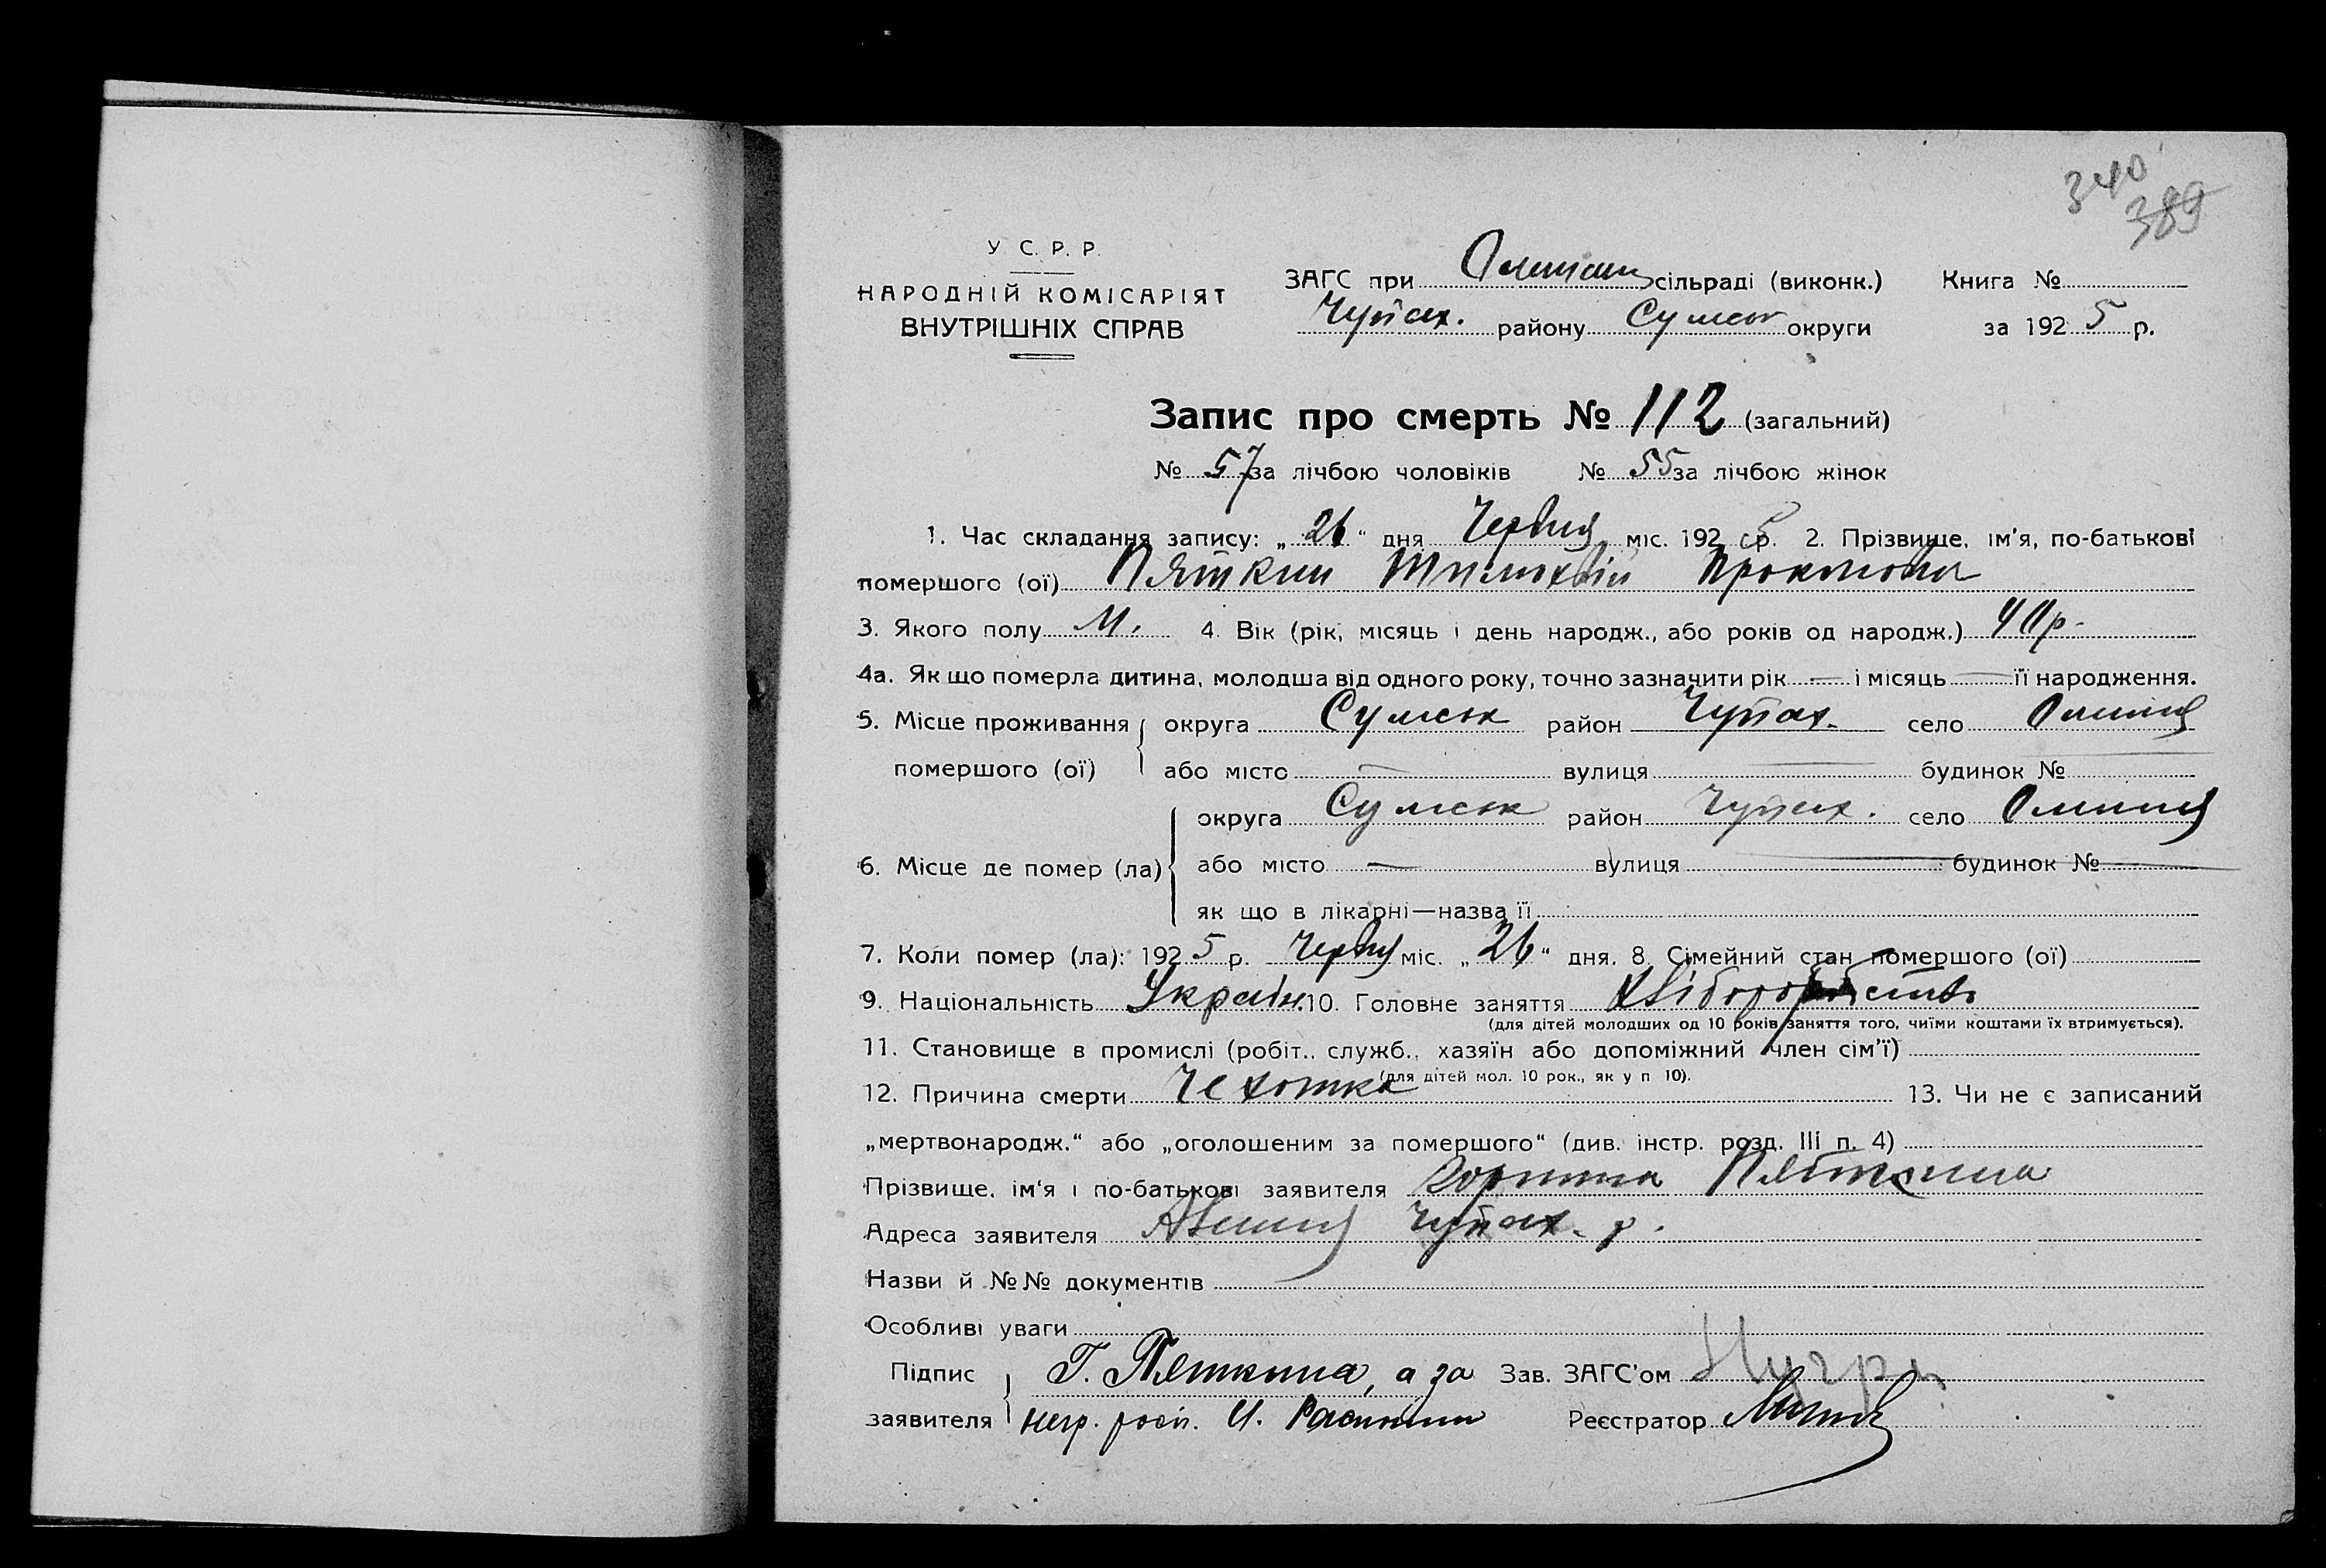 340
389
У С. Р. Р.
НАРОДНІЙ КОМІСАРІЯТ
ВНУТРІШНІХ СПРАВ
ЗАГС при сільраді (виконк.) Книга №
Чупах. району Сумськ округи за 192 5 р.
Запис про смерть № 112 (загальний)
№ 57 за лічбою чоловіків № 55 за лічбою жінок
1. Час складання запису: „ 26 “ дня Червня міс. 192 5 р. 2. Прізвище, ім'я, по-батькові
помершого (ої) Пяткин Тимохвій Прокопови
3. Якого полу М. 4. Вік (рік, місяць і день народж., або років од народж.) р.
4а. Як що померла дитина, молодша від одного року, точно зазначити рік — і місяць — її народження.
5. Місце проживання округа Сумськ район Чупах. село
помершого (ої) або місто — вулиця — будинок № —
округа Сумськ район Чупах. село
6. Місце де помер (ла) або місто — вулиця — будинок № —
як що в лікарні—назва її
7. Коли помер (ла): 192 5 р. Червня міс. „ 26 “ дня. 8. Сімейний стан помершого (ої)
9. Національність Україн. 10. Головне заняття
(для дітей молодших од 10 років заняття того, чиїми коштами їх втримується).
11. Становище в промислі (робіт., служб., хазяїн або допоміжний член сім'ї)
(для дітей мол. 10 рок., як у п 10).
12. Причина смерти Чехотка 13. Чи не є записаний
„мертвонародж.“ або „оголошеним за помершого“ (див. інстр. розд. III п. 4)
Прізвище, ім'я і по-батькові заявителя Горпина Пяткина
Адреса заявителя Чупах. р.
Назви й №№ документів
Особливі уваги
Підпис Г. Пяткина, а за Зав. ЗАГС'ом
заявителя негр. росп. И. Реєстратор